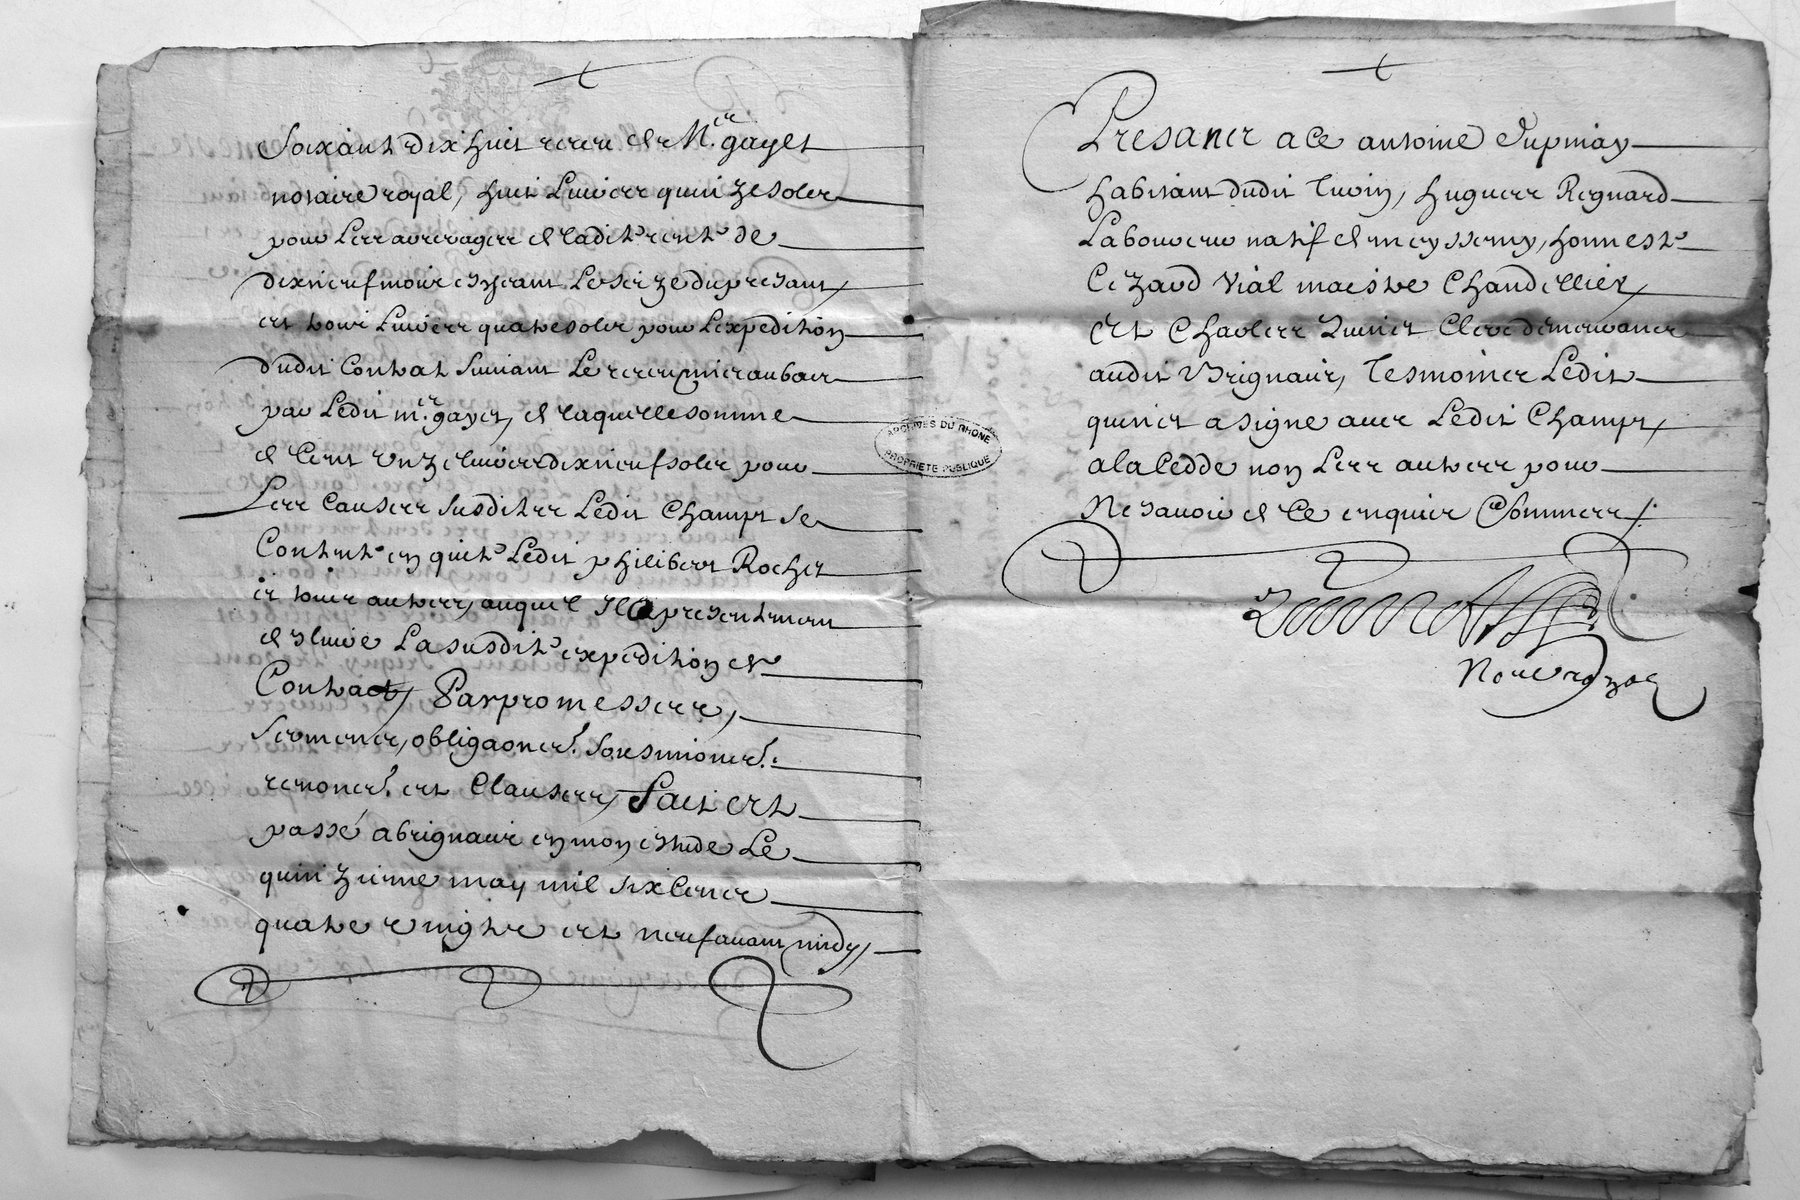 Soixant dix huict receu de M.re gayet
notaire royal, huit Livres quinze solz
pour Les arrerages de ladite rente de
dixneuf mois escheant Le seize du presant,
et trois Livres quatre solz pour L'expedition
dudit Contrat suivant Le receu mis au bas
par Ledit m.re gayet, de laquelle somme
de Cent unze livres dixneuf solz pour
Les Causes susdittes Ledit Champt se
Contente en quitte Ledit philibert Rochet
et tous autres, auquel Il a presentement
deslivré La susditte expedition de
Contract, Par promesses,
sermens, obligaons. sousmions.
renons. et Clauses, Faict et
passé a brignais en mon estude Le
quinzieme may mil six Cens
quatre vingtz et neuf avant midy,
Presans a ce antoine Dupinay
habitant dudit , hugues Regnard
Laboureur natif de meyssemy, honneste
Cezard Vial maistre Chandellier,
Et Charles Quinet Clerc demeurant
audit Brignais, Tesmoins Ledit
quinet a signé avec Ledit Champt,
a la Cedde non Les autres pour
Ne savoir de ce enquis & sommes /.
ARCHIVES DU RHONE
PROPRIETE PUBLIQUE